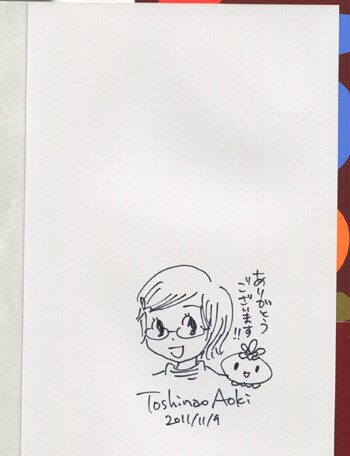 ありがとう
ございます!!
Toshinao Aoki
2011/11/9